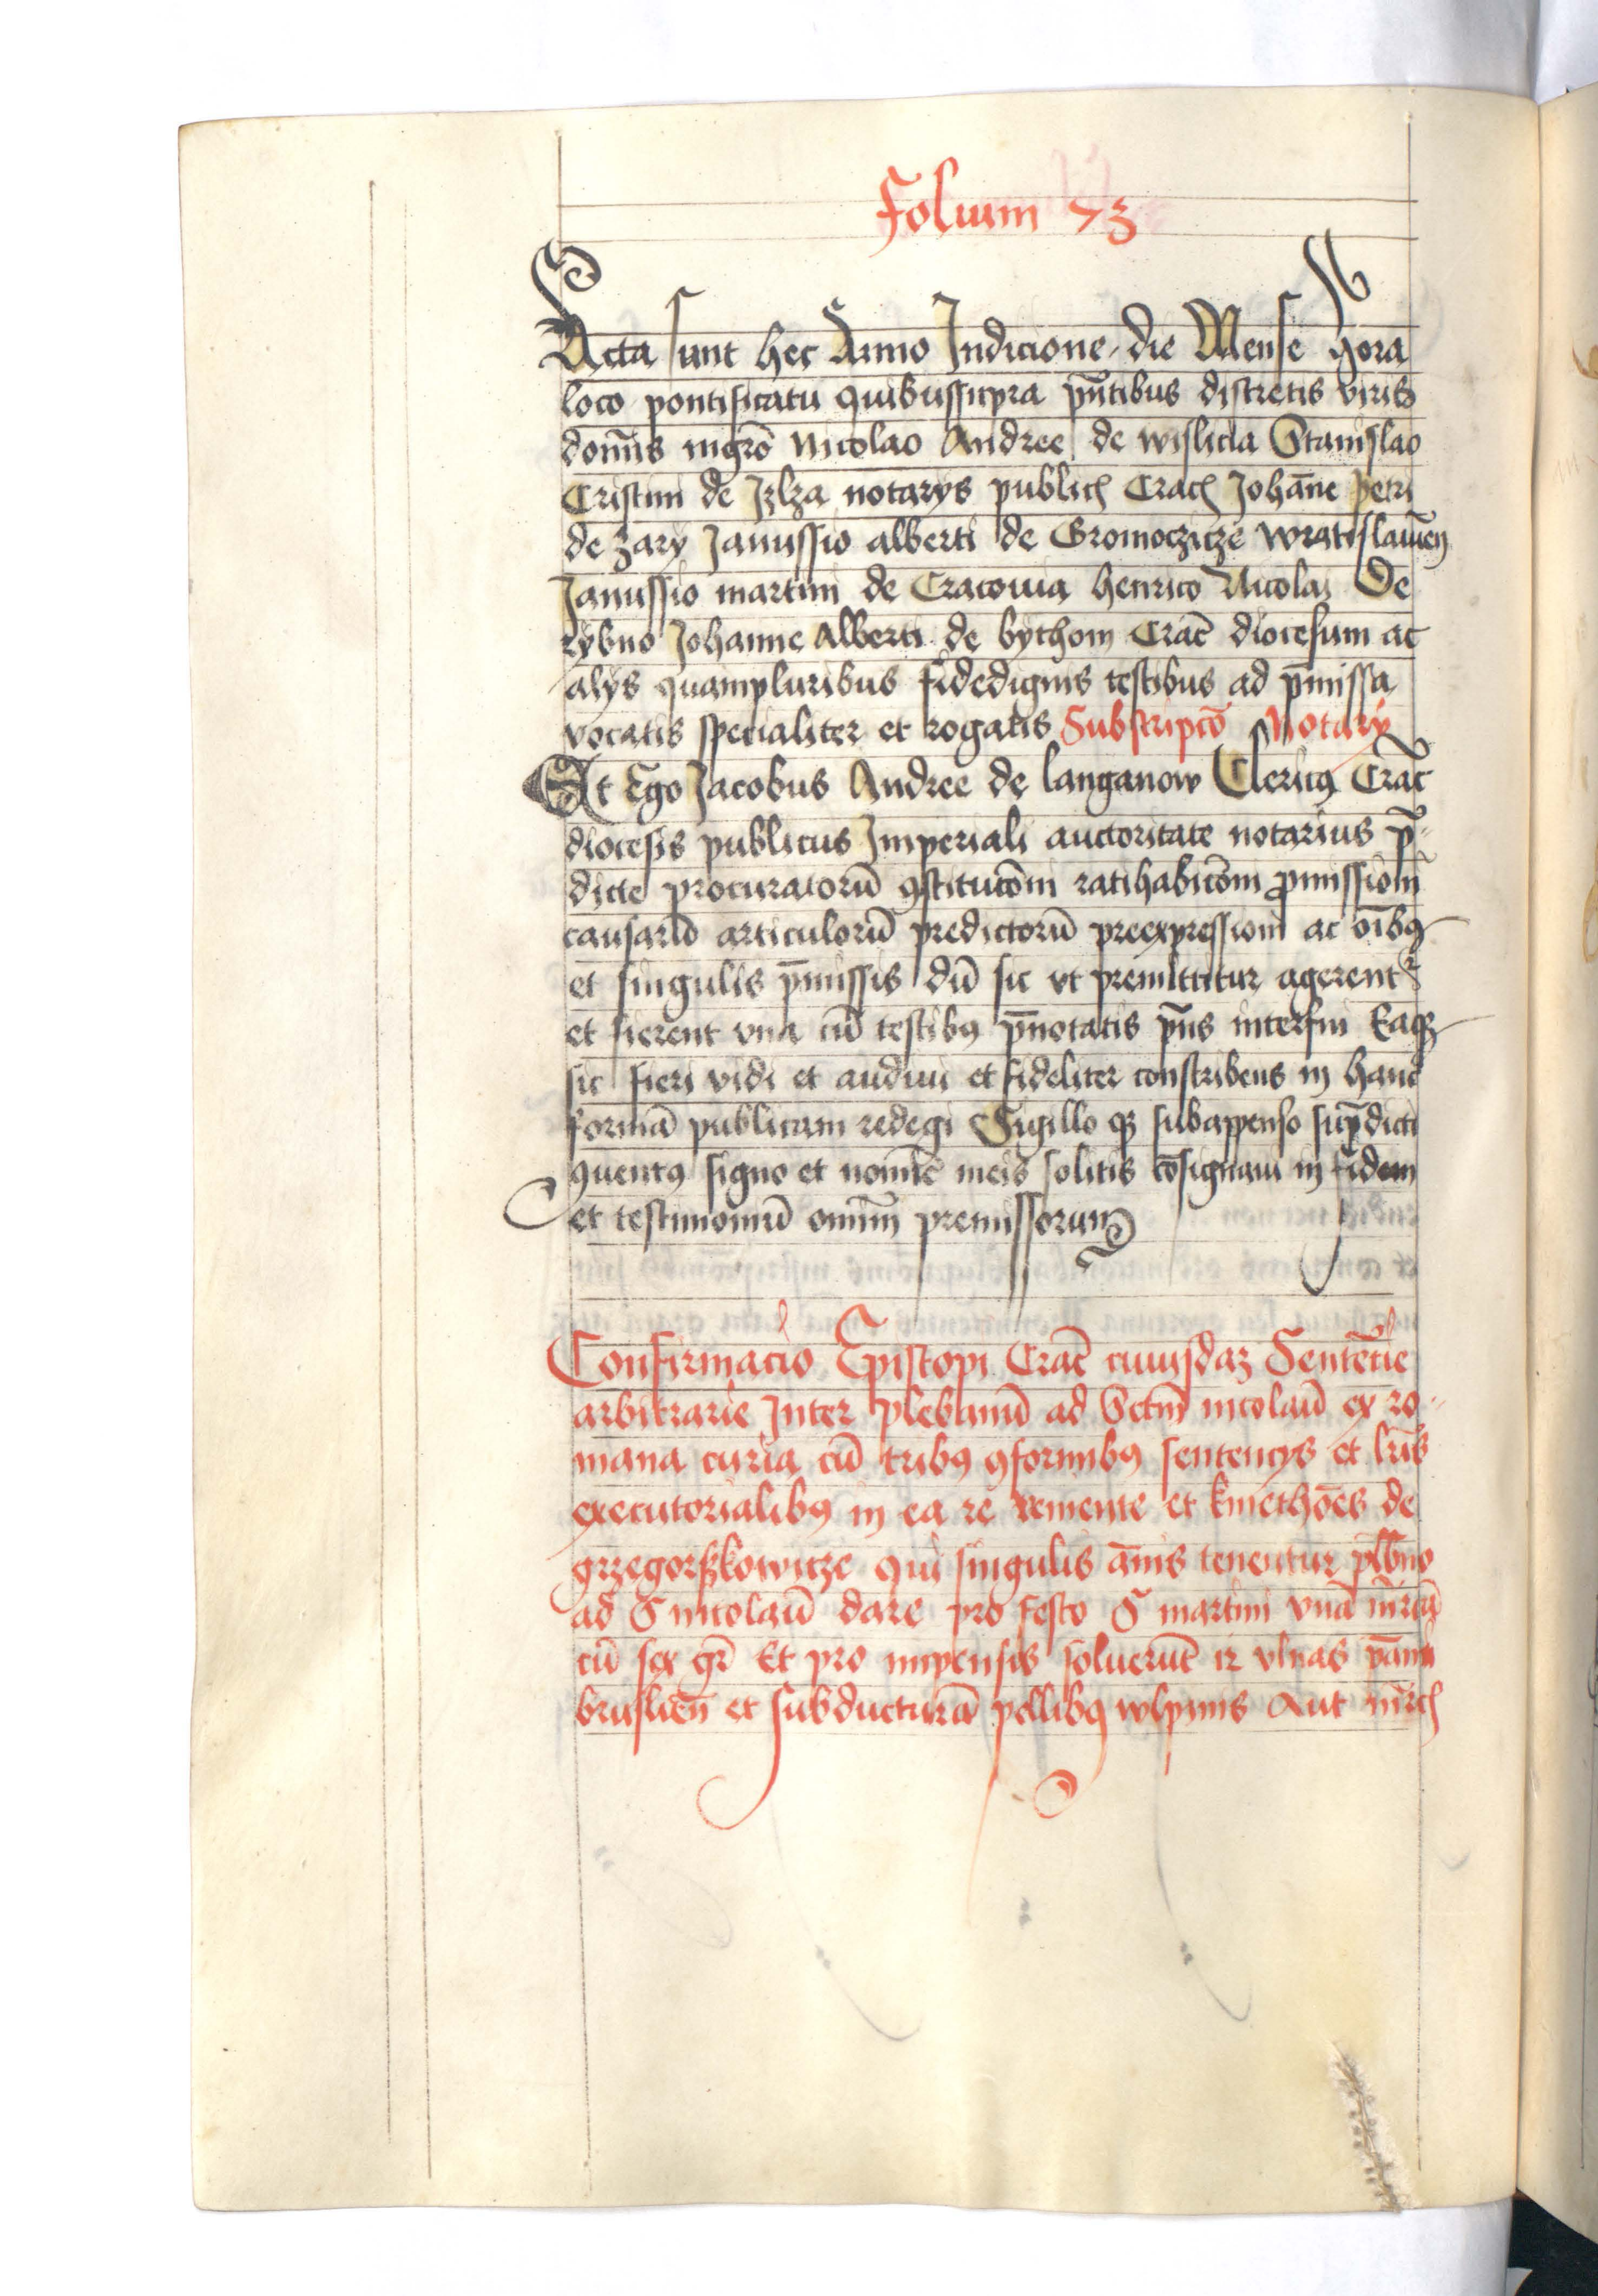 Folium 73
Acta sunt hec Anno Indicione die Mense hora
loco pontificatu quibussupra pn̄tibus discretis viris
domīs mgrō Nicolao Andree de wislicia Stanislao
Cristini de Izlza notarys public Crac Johāne petri
de zary Janussio alberti de Gromoczicze wratislauien̄
Janussio martini de Cracouia henrico Nicolai De
rybno Johanne Alberti de bythom Crac̄ diocesum ac
alys quampluribus fidedignis testibus ad p̄missa
vocatis specialiter et rogatis Subscripcō Notary
Et Ego Jacobus Andree de langanow Clericꝯ Crac̄
diocesis publicus Imperiali auctoritate notarius p̄
dicte procuratorū ꝯstitucōni ratihabicōni ꝓmissioni
causarū articulorū predictorū preexpressioni ac oībꝯ
et singulis p̄missis dū sic vt premittitur agerent
et fierent vna cū testibꝯ p̄notatis p̄ns interfui Eaqꝫ
sic fieri vidi et audiui et fideliter conscribens in hanc
formā publicam redegi Sigillo qꝫ subappenso sup̄dicti
ꝯuentꝯ signo et nomīe meis solitis cōsignaui in fidem
et testimoniū omniū premissorum
Confirmacio Episcopi Crac̄ cuiusdaꝫ Sentēcie
arbitrarie Inter plebanū ad Sctm̄ nicolaū ex ro
mana curia cū tribꝯ ꝯformibꝯ sentencys et lrīs
executorialibꝯ in ea re veniente et kmethōes de
grzegorzkowicze qui singulis ānis tenentur plb̄no
ad S nicolaū dare pro festo S martini vnā mrcā
cū sex gr̄ Et pro impensis soluerūt 12 vlnas pāni
bruslien̄ et subducturā pellibꝯ wlpinis Aut mrc